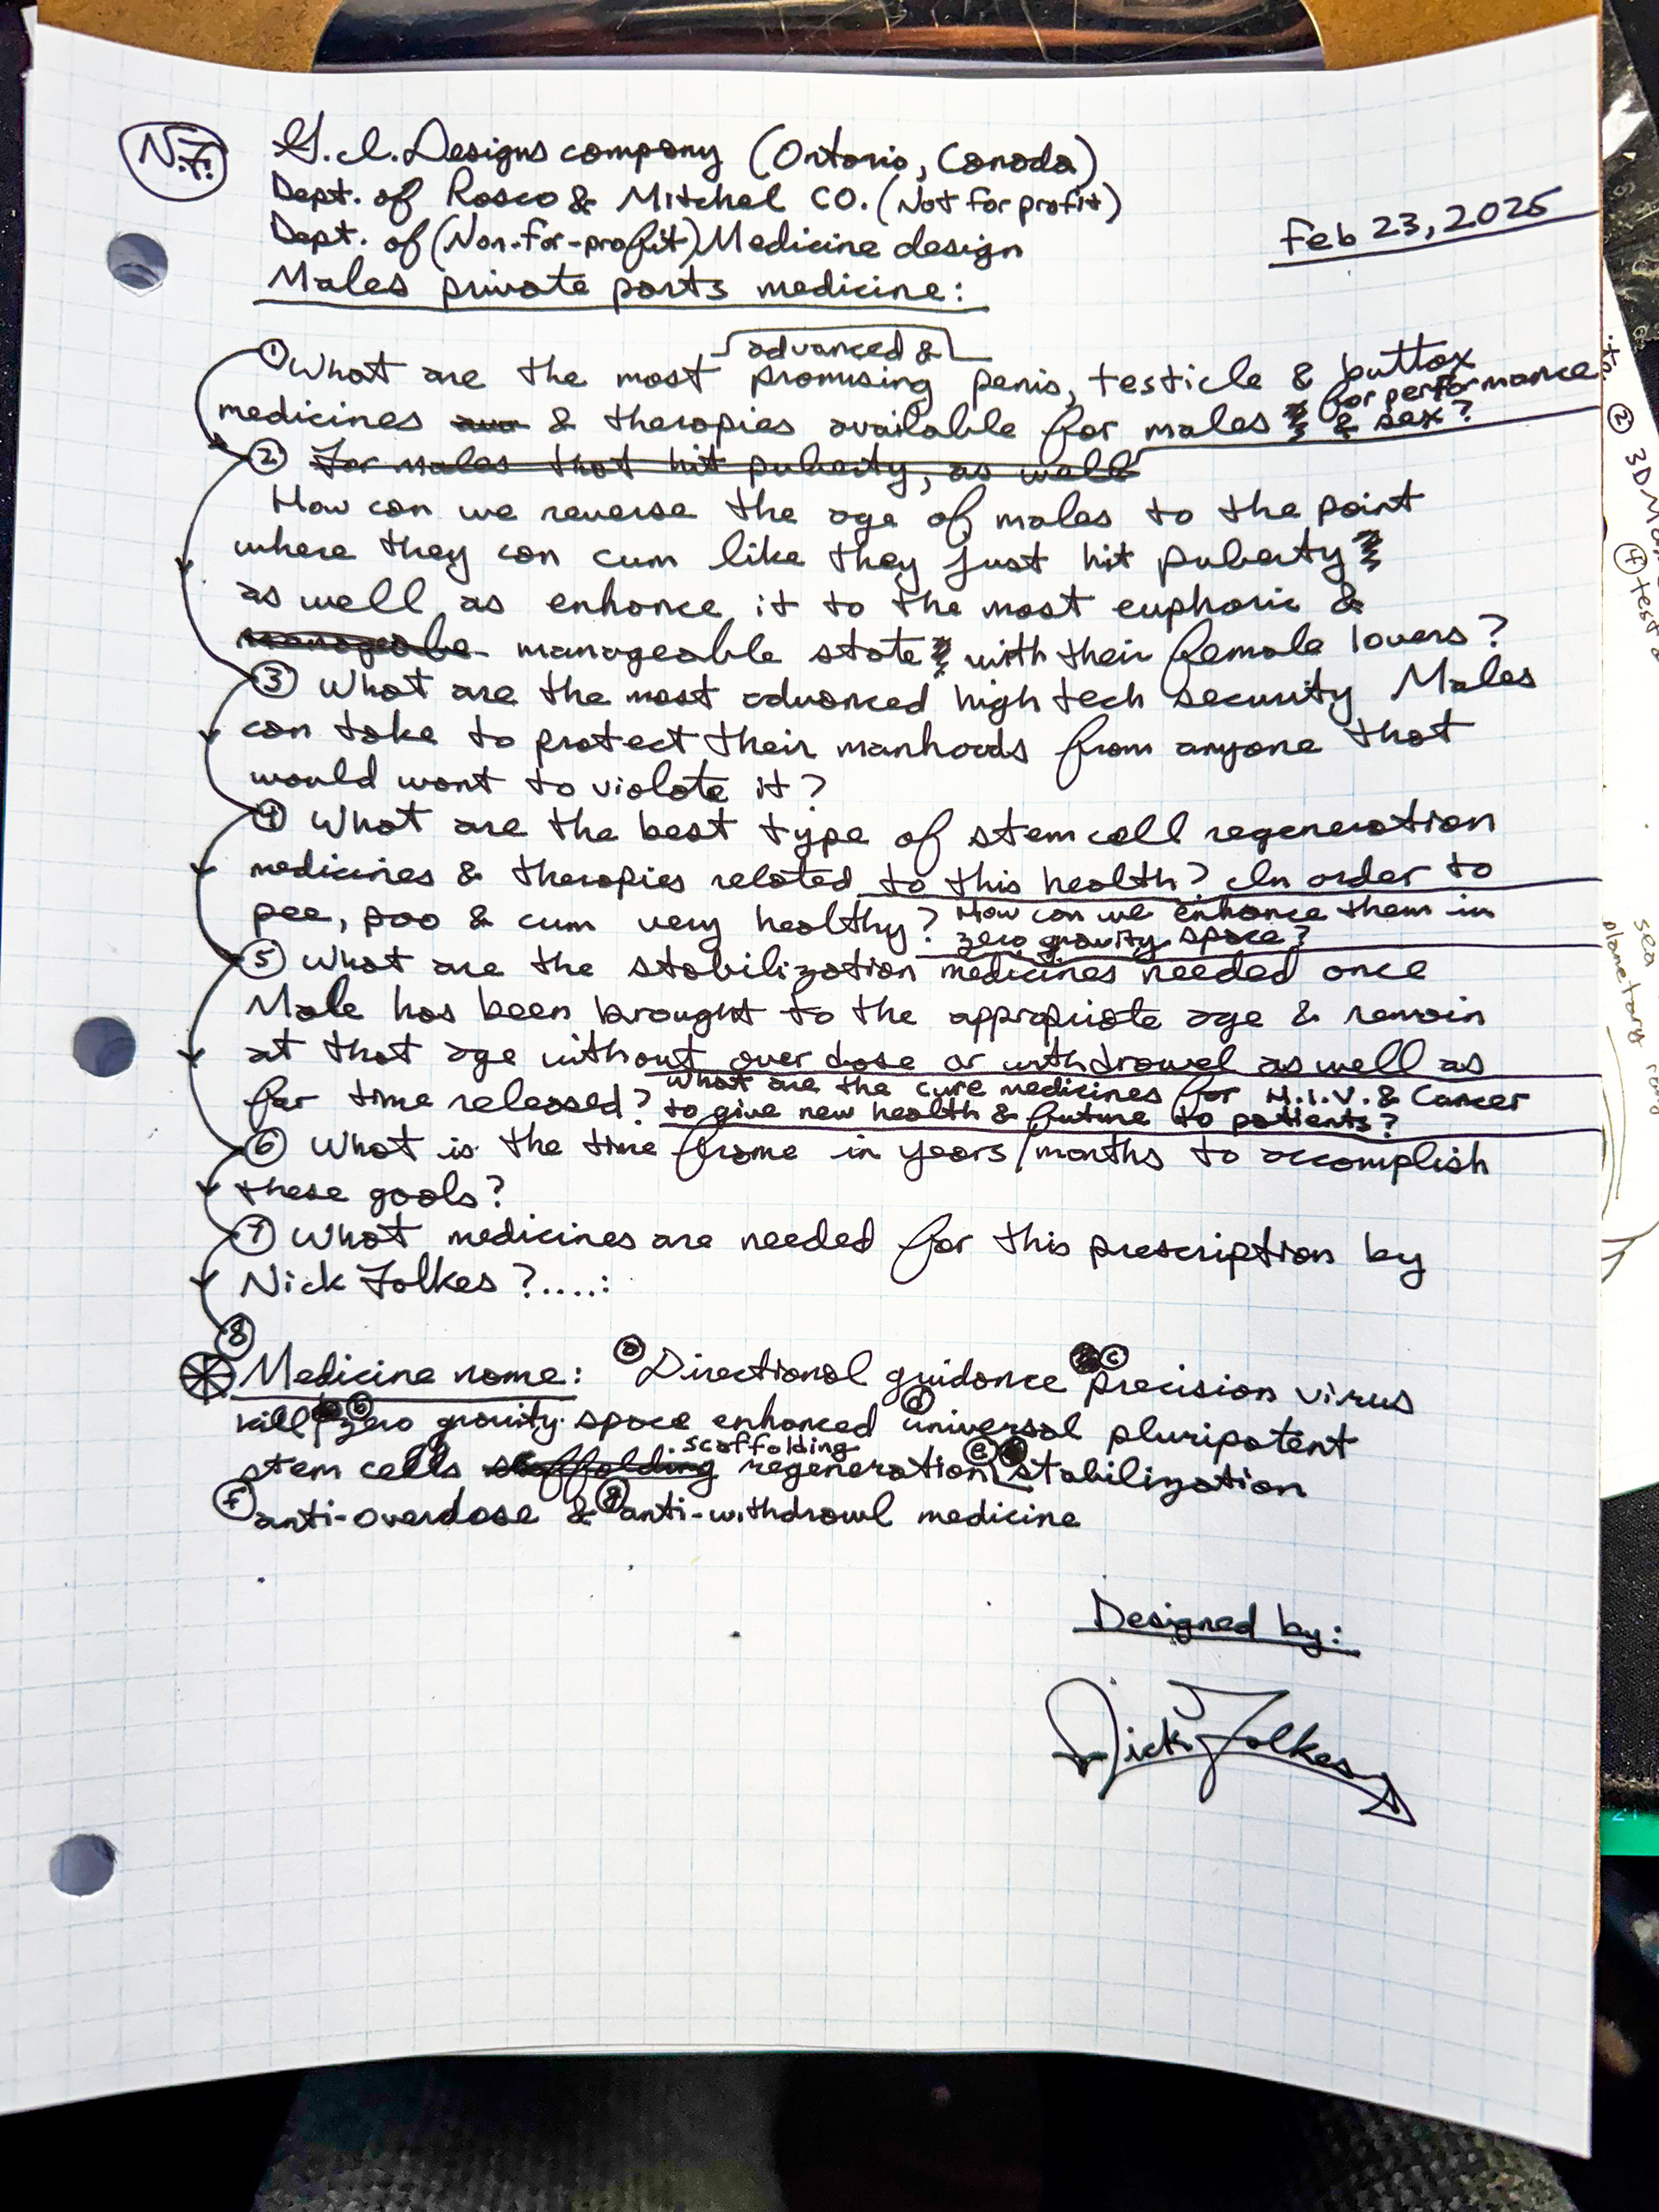 N.F.
G.I. Designs company (Ontario, Canada)
Dept. of Rosco & Mitchel CO. (Not for profit)
Dept. of (Non-for-profit) Medicine design
Feb 23, 2025
Males private parts medicine:
advanced &
① What are the most promising penis, testicle & buttox
for performance
medicines & therapies available for males & sex?
② For males that hit puberty, as well
How can we reverse the age of males to the point
where they can cum like they just hit puberty
as well as enhance it to the most euphoric &
manageable state with their female lovers?
③ What are the most advanced high tech security Males
can take to protect their manhoods from anyone that
would want to violate it?
④ What are the best type of stem cell regeneration
medicines & therapies related to this health? In order to
pee, poo & cum very healthy? How can we enhance them in
zero gravity space?
⑤ What are the stabilization medicines needed once
Male has been brought to the appropriate age & remain
at that age without over dose or withdrawel as well as
for time released? What are the cure medicines for H.I.V. & Cancer
to give new health & future to patients?
⑥ What is the time frame in years/months to accomplish
these goals?
⑦ What medicines are needed for this prescription by
Nick Folkes?....:
⑧
Medicine name: ⓐ Directional guidance ⓒ precision virus
kill ⓑ zero gravity space enhanced ⓓ universal pluripotent
scaffolding
stem cells scaffolding regeneration ⓔ stabilization
ⓕ anti-overdose & ⓖ anti-withdrawl medicine
Designed by:
Nick Folkes
② 3D
④ test
planetary